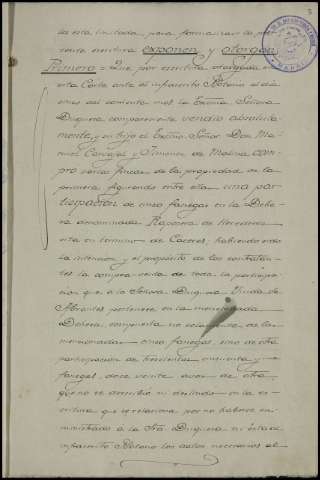 da esta limitada, para formalizar la pre-
sente escritura exponen y otorgan
Primero = Que por escritura otorgada
esta Corte ante el infrascrito Notario el dia
mes del corriente mes la Excma Señora
Duquesa compareciente vendio absoluta-
mente, y su hijo el Excmo Señor Don Ma-
nuel Carvajal y Jimenez de Molina com-
pro varias fincas de la propiedad de la
primera figurando entre ellas una par-
ticipacion de cinco fanegas en la Dehe-
sa denominada Raposera de Herederos
sita en termino de Caceres, habiendo sido
la intencion y el proposito de los contratan-
tes la compra-venta de toda la participa-
cion que a la Señora Duquesa Viuda de
Abrantes pertenece en la mencionada
Dehesa, compuesta no solamente de las
mencionadas cinco fanegas, sino de otra
participacion de trescientas cincuenta y
fanegas, doce veinte avos de otra
que no se describio ni deslindo en la es-
critura que se relaciona por no haberse su-
ministrado a la Sra. Duquesa ni a este
infrascrito Notario los datos necesarios al